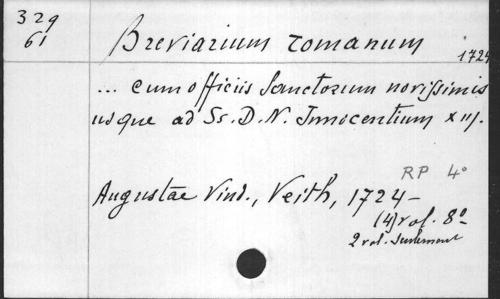 329
61
Breviarium romanum
1724
... cum officiis Sanctorum novissimis
usque ad Ss. D. N. Innocentium XIII.
RP 4°
Augustae Vind., Veith, 1724-
(4) vol. 8°
2 vol. seulement